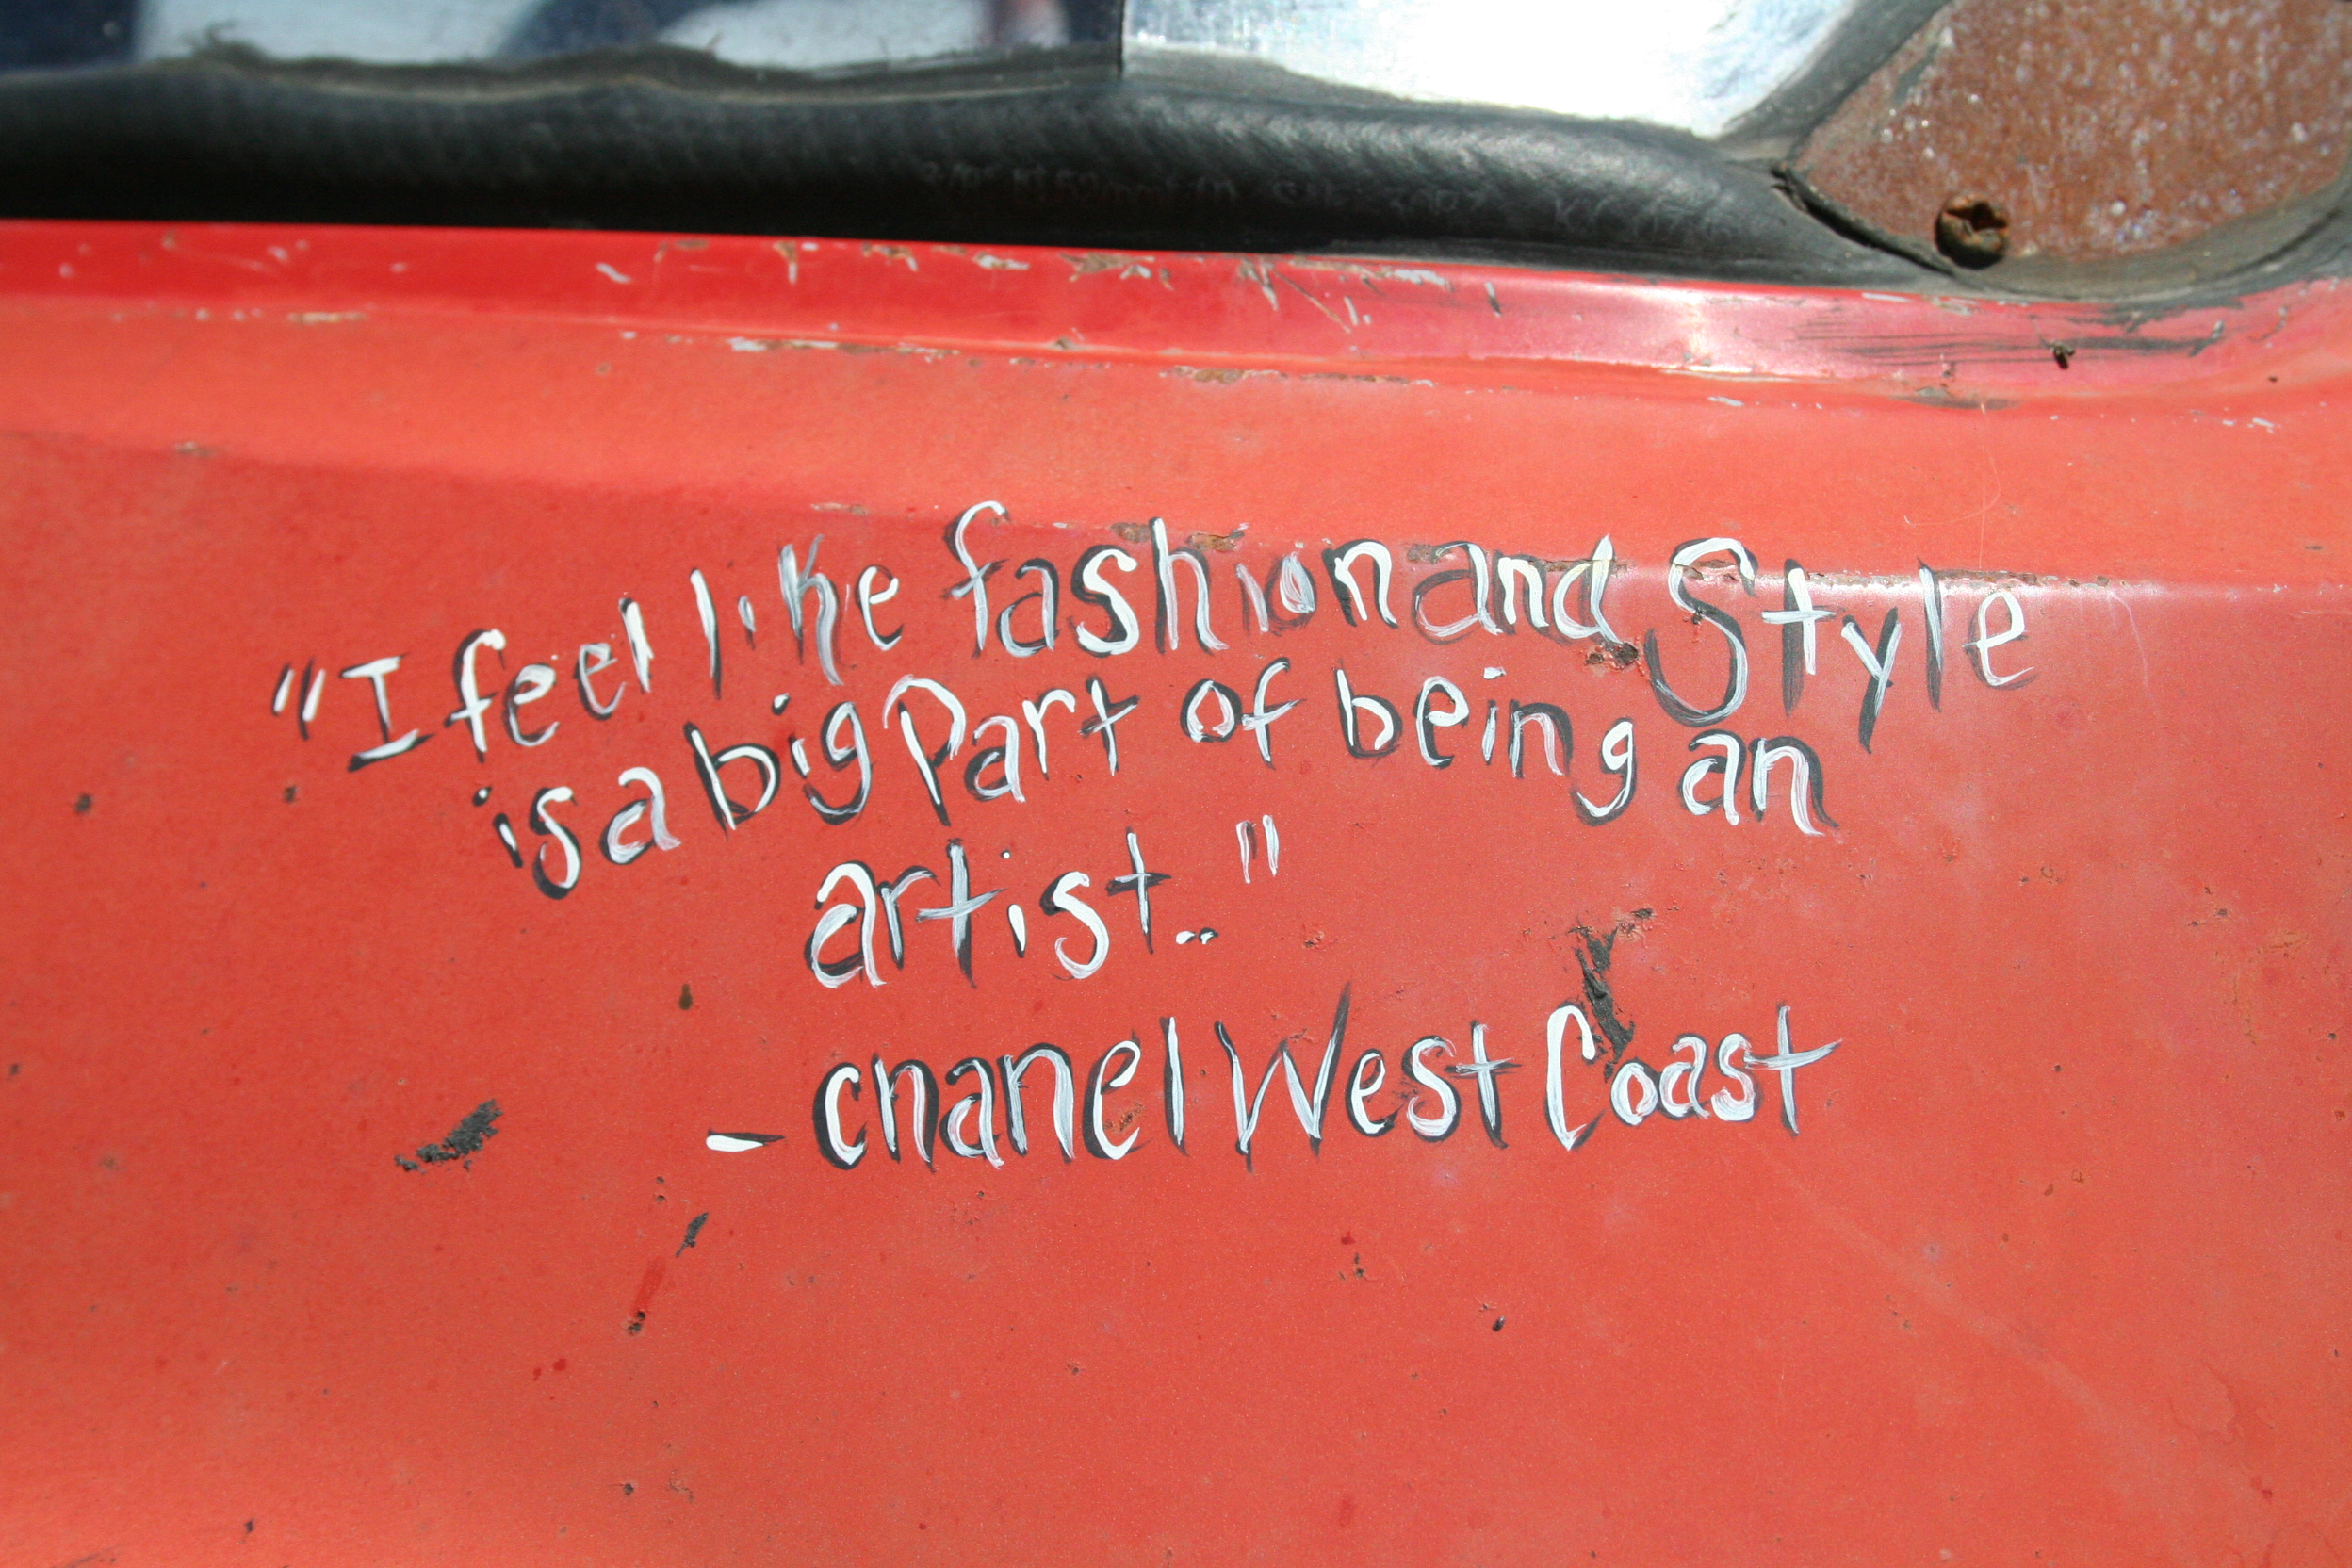 "I feel like fashion and Style
is a big Part of being an
artist.."
- chanel West Coast